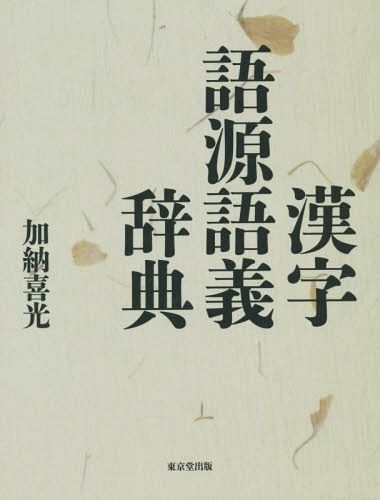 漢字
語源語義
辞典
加納喜光
東京堂出版